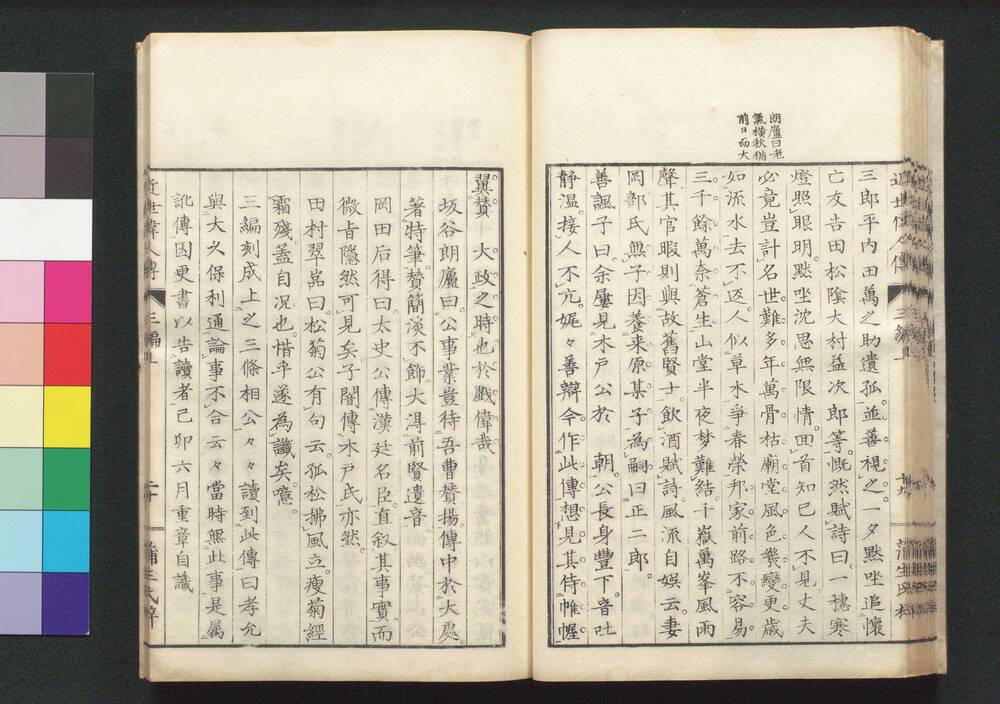 朗廬曰老
氣橫秋猶
前日而大
三郎平内田萬之助遺孤。並善視之。一夕默坐追懷
亡友吉田松陰大村益次郎等。慨然賦詩曰。一穗寒
燈照眼明。默坐沈思無限情。回首知已人不見。丈夫
必竟豈計名。世難多年萬骨枯。廟堂風色幾變更。歲
如流水去不返。人似草木爭春榮。邦家前路不容易
三千餘萬奈蒼生。山堂半夜夢難結。千嶽萬峯風雨
聲。其官暇則與故舊賢士飲酒賦詩。風流自娯云。妻
岡部氏。無子。因養来原某子為嗣。曰正二郎。
善諷子曰。余屢見木戸公於 朝。公長身豐下。音吐
静温。接人不亢。娓々善辯。今作此傳。想見其侍帷幄
翼贊 大政之時也。於戲偉哉
坂谷朗廬曰。公事業豈待吾曹贊揚。傳中於大處
著特筆贊。簡淡不飾。大得前賢遺音
岡田后得曰。太史公傳漢廷名臣。直叙其事實。而
微旨隱然可見矣。子闇傳木戸氏亦然。
田村翠嵓曰。松菊公有句云。孤松拂風立。瘦菊經
霜殘。蓋自况也。惜乎遂為讖矣。噫。
三編刻成。上之三條相公。々々讀到此傳曰。孝允
與大久保利通論事不合云々。當時無此事。是属
訛傳。因更書以告讀者。己卯六月重章自識
近世偉人傳
三編上
二十
蒲生氏梓